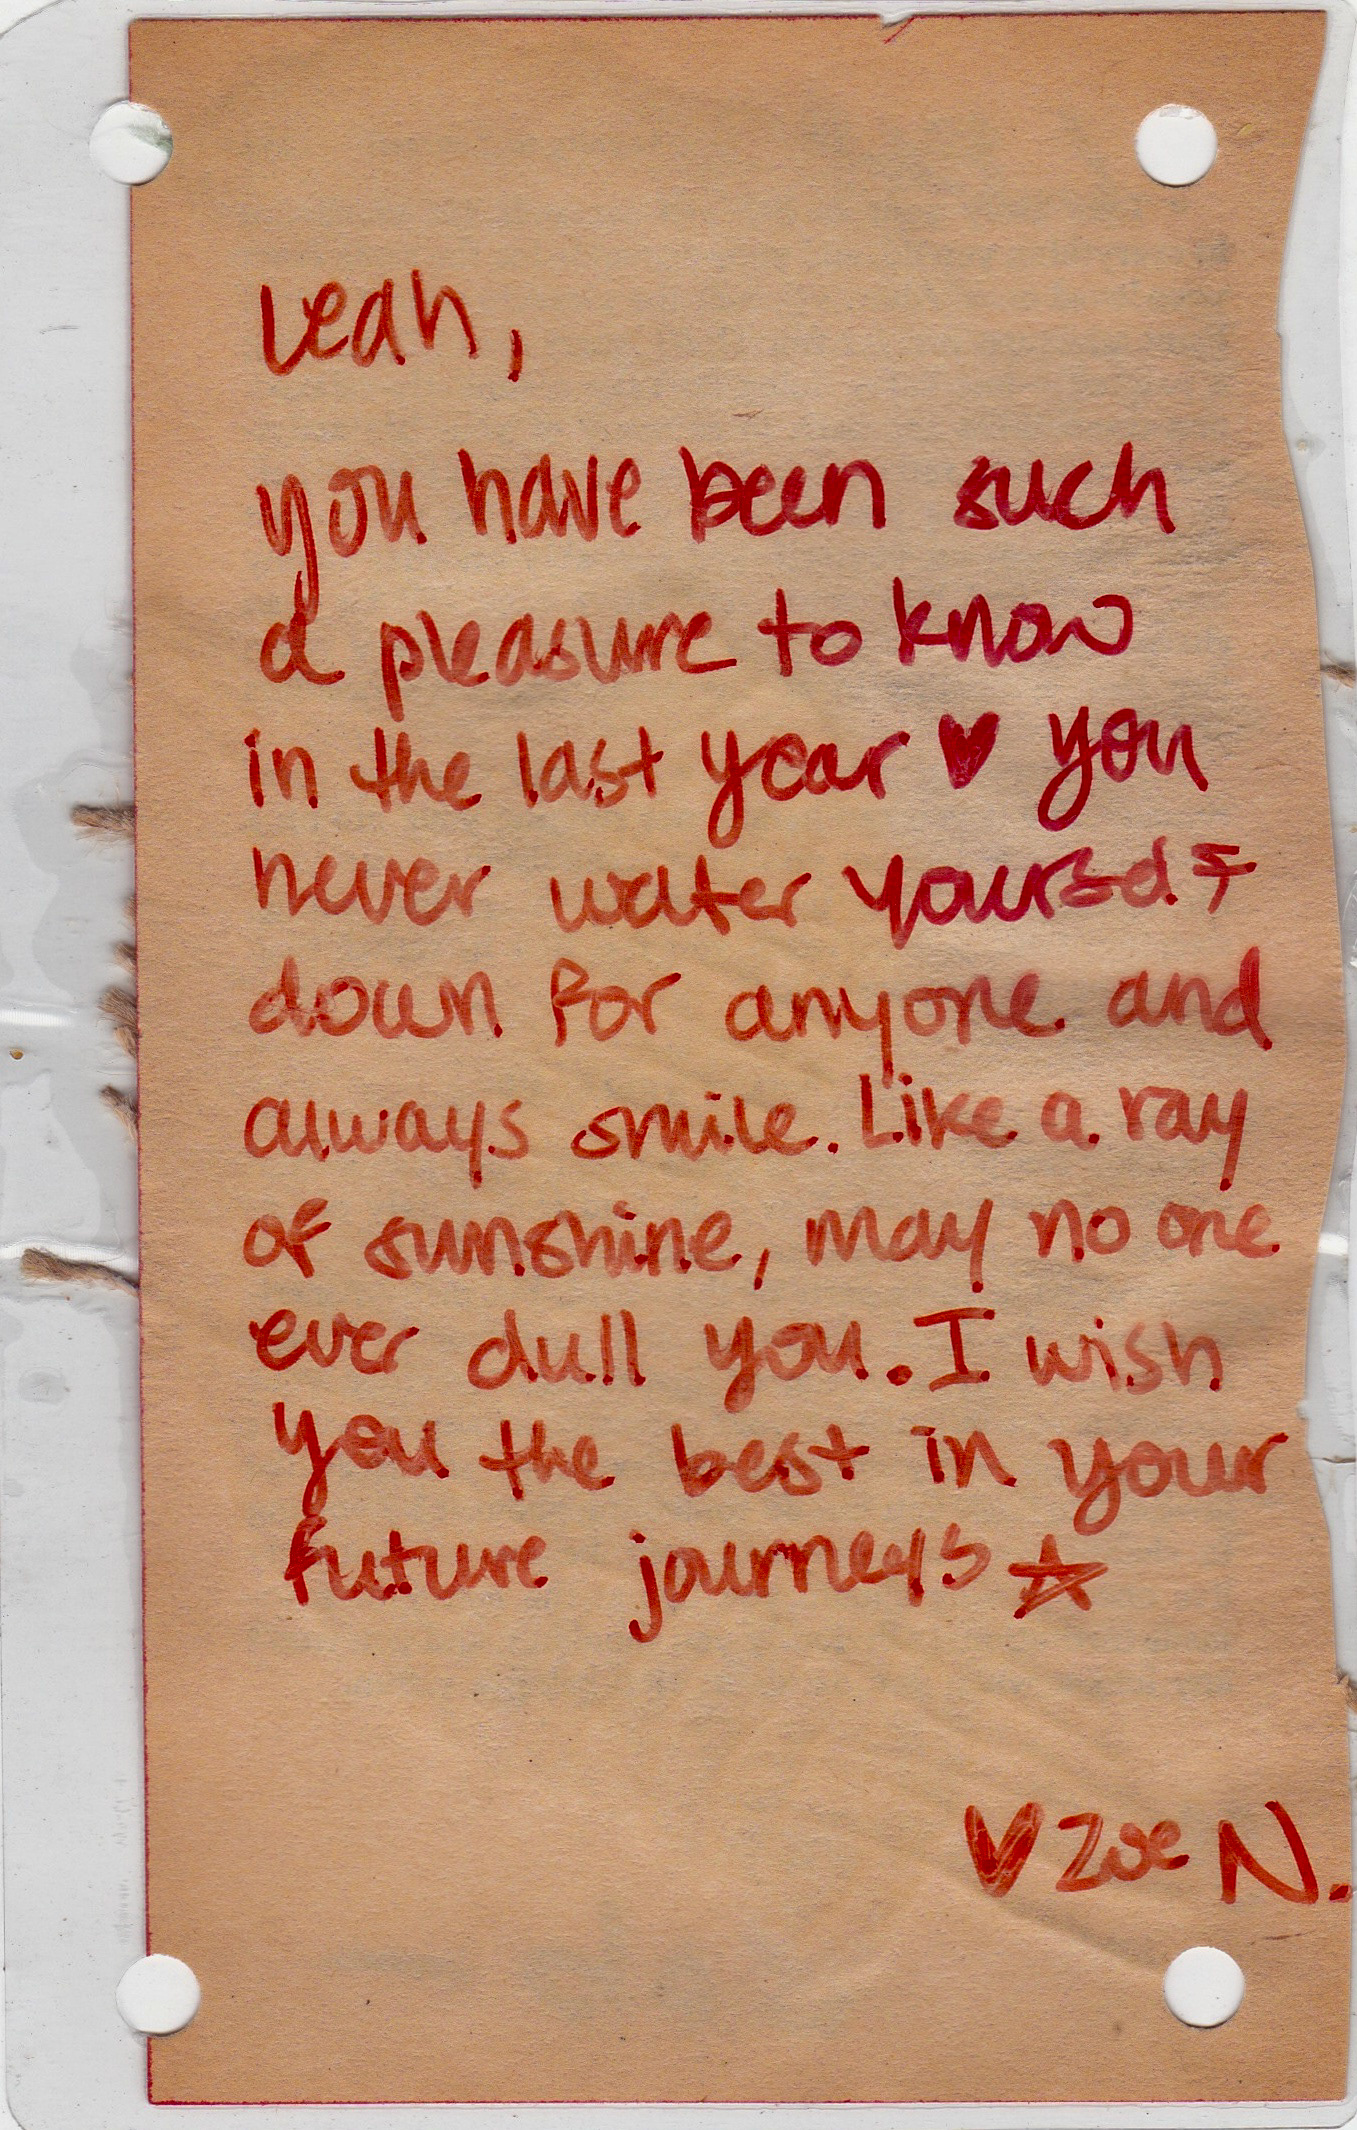 Leah,
you have been such
a pleasure to know
in the last year ♥ you
never water yourself
down for anyone and
always smile. Like a ray
of sunshine, may no one
ever dull you. I wish
you the best in your
future journeys ☆
♥ Zoe N.